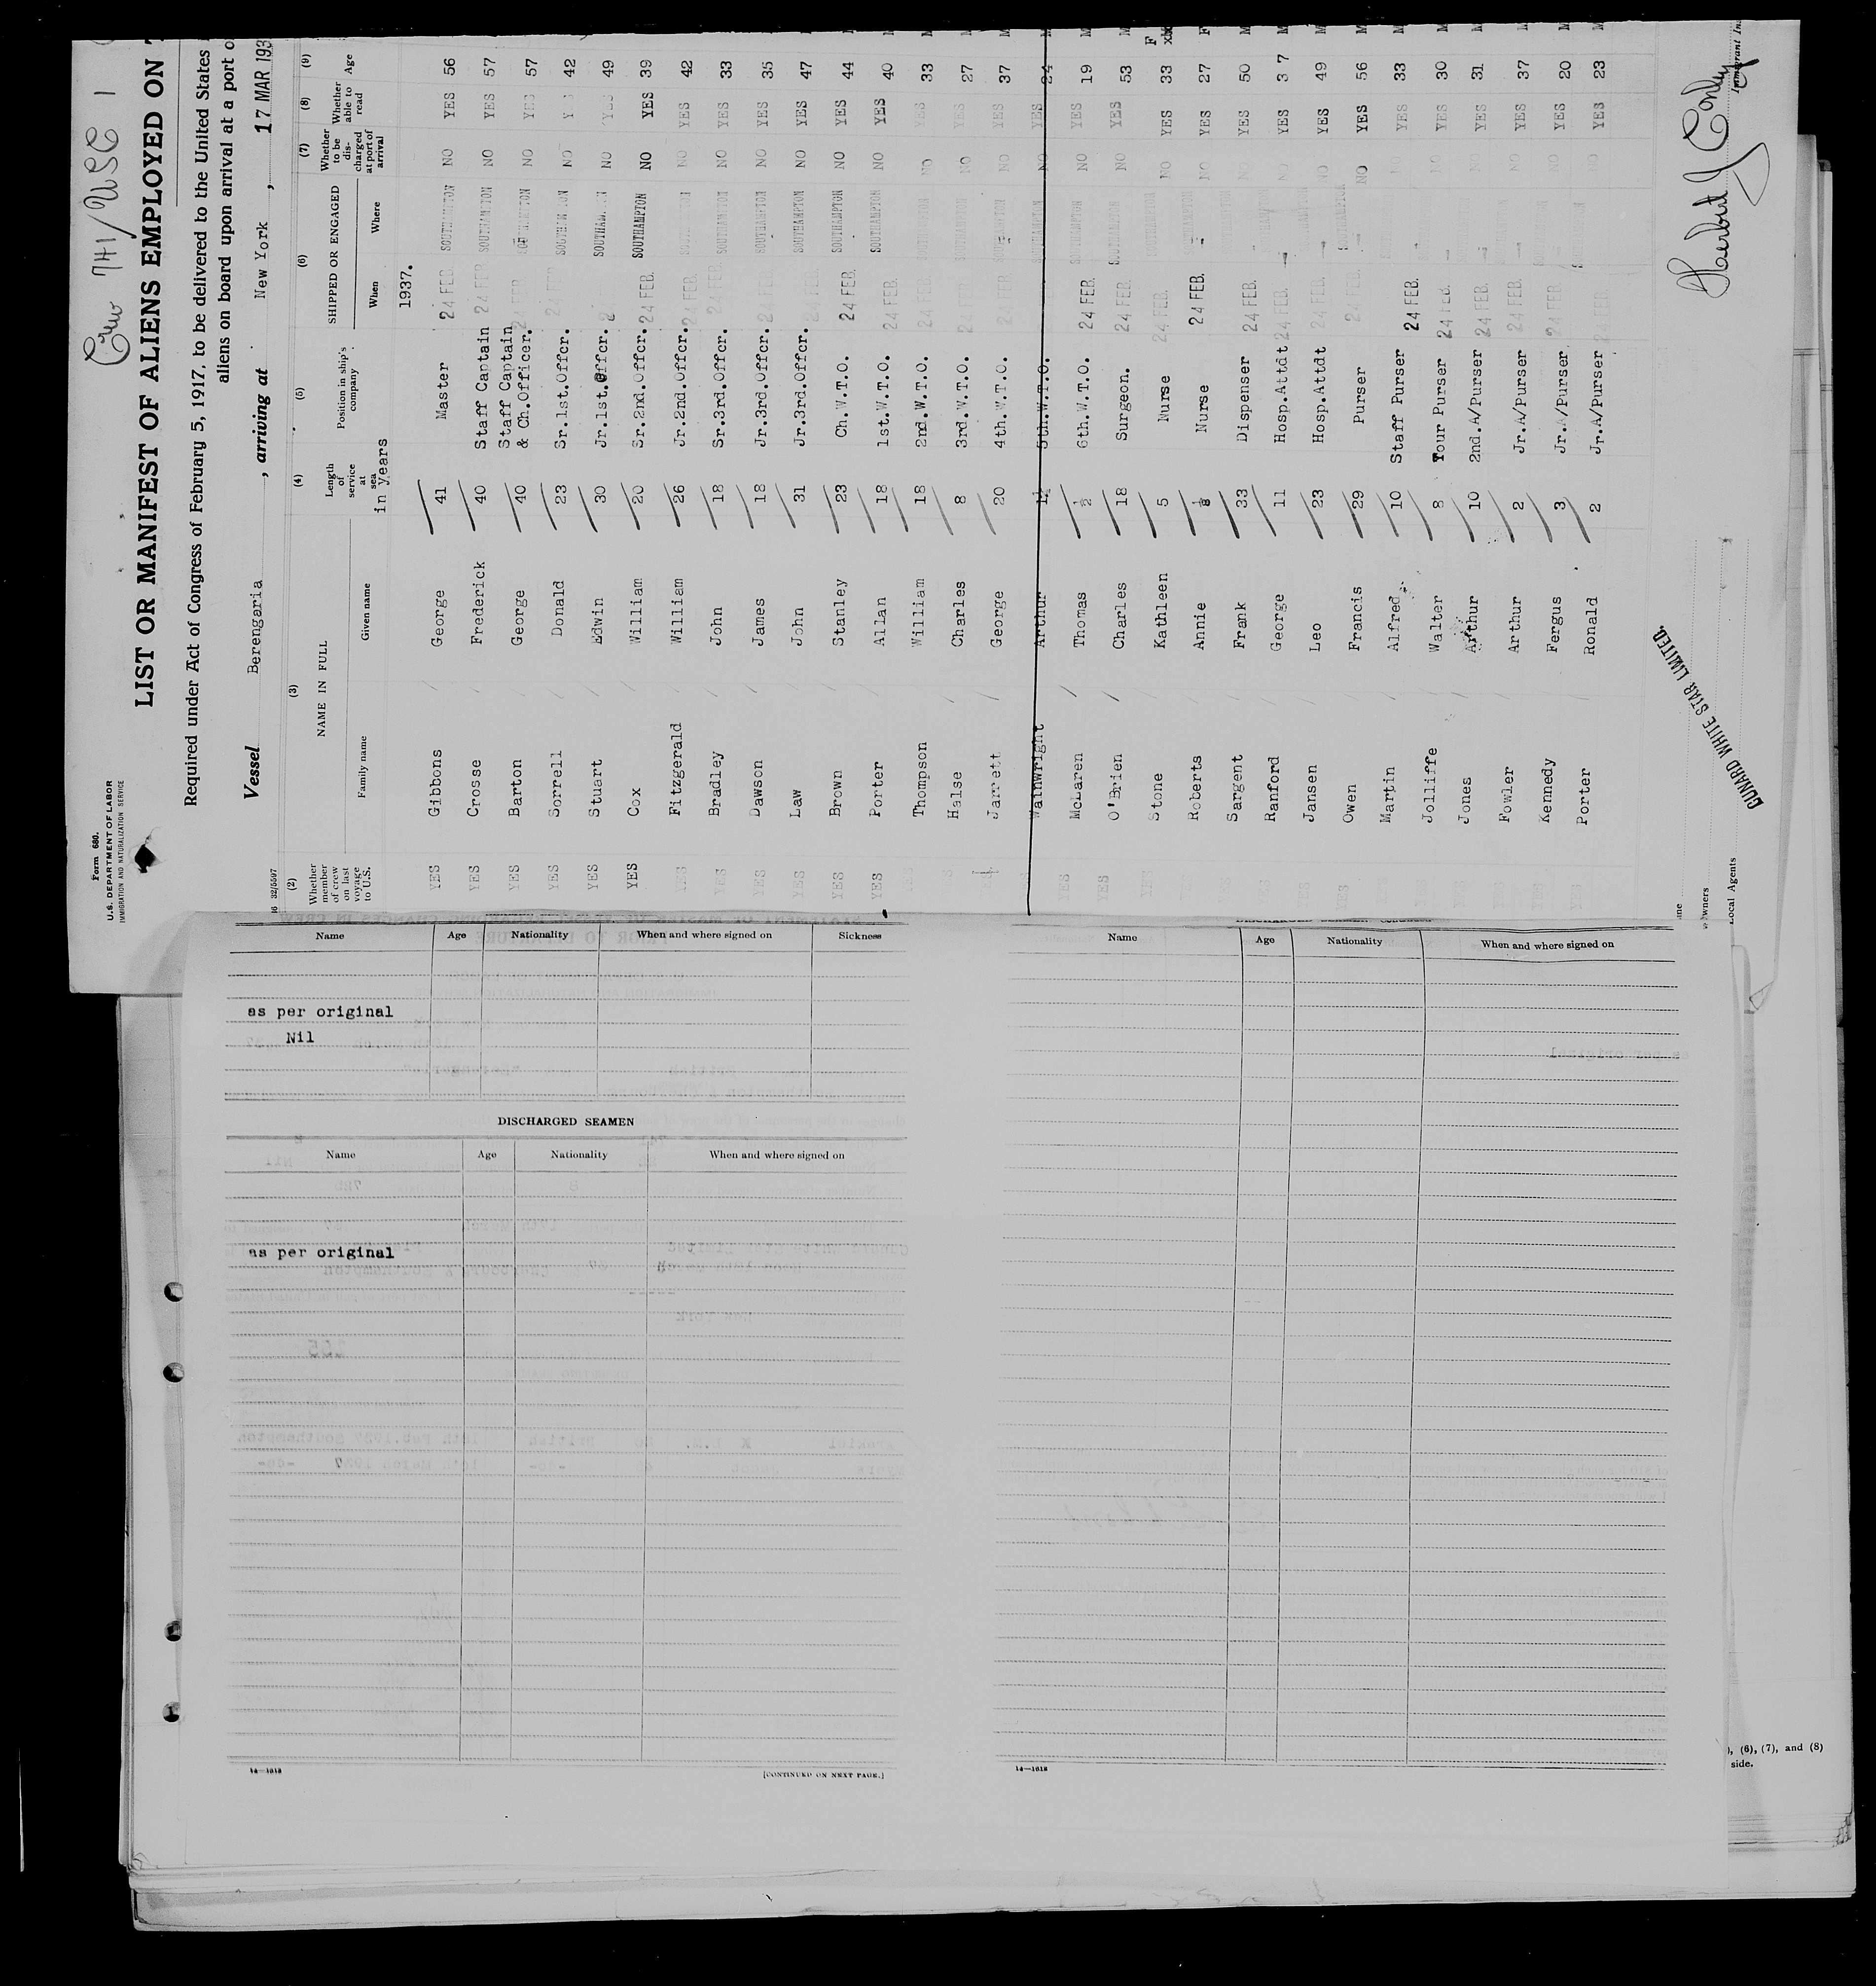 Crew 741/WSC 1
Form 680.
U.S. DEPARTMENT OF LABOR
IMMIGRATION AND NATURALIZATION SERVICE
LIST OR MANIFEST OF ALIENS EMPLOYED ON
Required under Act of Congress of February 5, 1917, to be delivered to the United States
aliens on board upon arrival at a port o
Vessel Berengaria, arriving at New York, 17 MAR 193
(2) (3) (4) (5) (6) (7) (8) (9)
Whether member of crew on last voyage to U.S. NAME IN FULL Family name Given name Length of service at sea in years Position in ship's company SHIPPED OR ENGAGED When Where Whether to be discharged at port of arrival Whether able to read Age
1937.
YES Gibbons George 41 Master 24 FEB. SOUTHAMPTON NO YES 56
YES Crosse Frederick 40 Staff Captain 24 FEB SOUTHAMPTON NO YES 57
YES Barton George 40 Staff Captain & Ch.Officer. FEB NO YES 57
YES Sorrell Donald 23 Sr.1st.Offcr. NO 42
YES Stuart Edwin 30 Jr.1st.Offcr. SOUTHAMPTON NO YES 49
YES Cox William 20 Sr.2nd.Offcr. 24 FEB. SOUTHAMPTON NO YES 39
YES Fitzgerald William 26 Jr.2nd.Offcr. 24 FEB. NO YES 42
YES Bradley John 18 Sr.3rd.Offcr. 24 FEB SOUTHAMPTON NO YES 33
YES Dawson James 18 Jr.3rd.Offcr. 24 FEB SOUTHAMPTON NO YES 35
YES Law John 31 Jr.3rd.Offcr. 24 FEB SOUTHAMPTON NO YES 47
YES Brown Stanley 23 Ch.W.T.O. 24 FEB. SOUTHAMPTON NO YES 44
YES Porter Allan 18 1st.W.T.O. 24 FEB. SOUTHAMPTON NO YES 40
Thompson William 18 2nd.W.T.O. 24 FEB. NO YES 33
Halse Charles 8 3rd.W.T.O. NO YES 27
Jarrett George 20 4th.W.T.O. NO YES 37
Wainwright Arthur 5th.W.T.O. NO YES 24
YES McLaren Thomas ½ 6th.W.T.O. 24 FEB. NO YES 19
YES O'Brien Charles 18 Surgeon. 24 FEB. NO YES 53
Stone Kathleen 5 Nurse 24 FEB. NO YES 33 F
Roberts Annie Nurse 24 FEB. NO YES 27 F
YES Sargent Frank 33 Dispenser 24 FEB. NO YES 50
Ranford George 11 Hosp.Attdt 24 FEB. NO YES 3 7
YES Jansen Leo 23 Hosp.Attdt 24 FEB. NO YES 49
YES Owen Francis 29 Purser NO YES 56
Martin Alfred 10 Staff Purser 24 FEB. NO YES 33
Jolliffe Walter 8 Tour Purser 24 Feb. NO YES 30
Jones Arthur 10 2nd.A/Purser 24 FEB. NO YES 31
Fowler Arthur 2 Jr.A/Purser 24 FEB. NO YES 37
YES Kennedy Fergus 3 Jr.A/Purser 24 FEB. NO YES 20
YES Porter Ronald 2 Jr.A/Purser 24 FEB. NO YES 23
CUNARD WHITE STAR LIMITED.
Owners
Local Agents
Herbert J Conley
Immigrant In
Name Age Nationality When and where signed on Sickness
as per original
Nil
DISCHARGED SEAMEN
Name Age Nationality When and where signed on
as per original
14—1618
[CONTINUED ON NEXT PAGE.]
Name Age Nationality When and where signed on
14—1618
), (6), (7), and (8)
side.